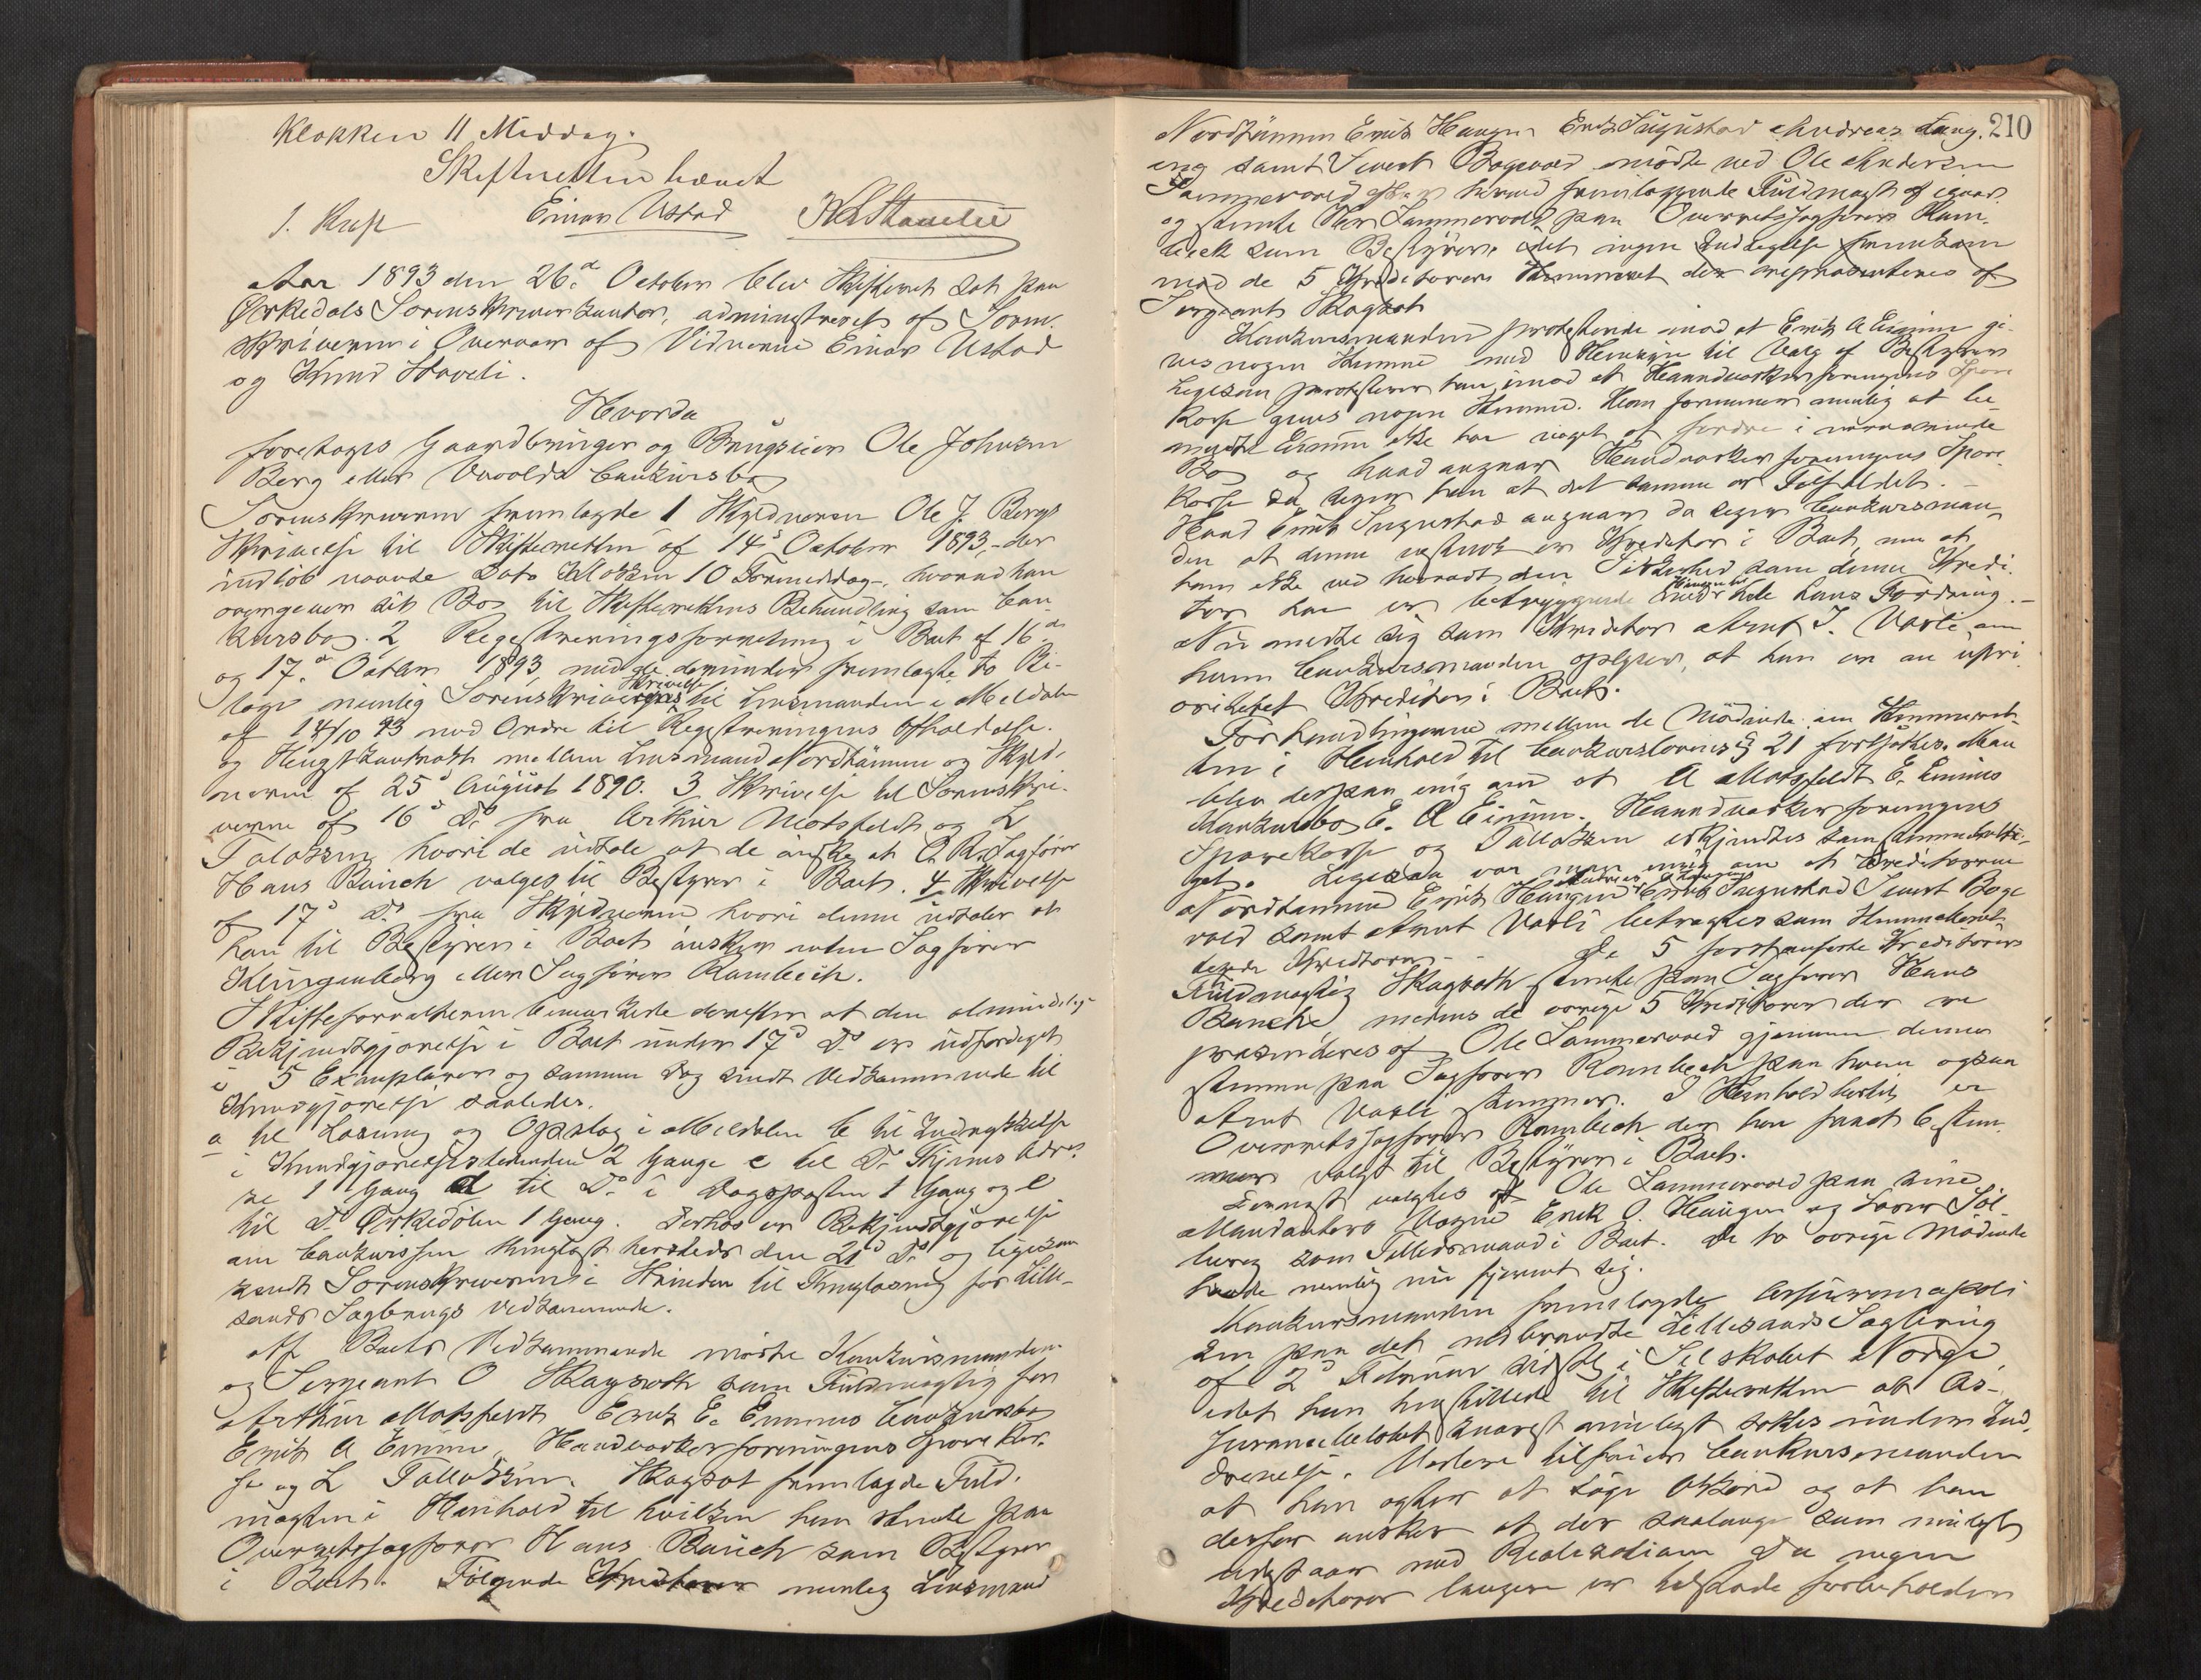 Klokken 11 Middag.
Skifteretten hævet
J. Krefs Einar Ustad K Stavelie
Aar 1893 den 26d October blev Skifteret sat paa
Ørkedals Sorenskriverkontor, administreret af Soren-
skriveren i Overvær af Vidnerne Einar Ustad
og Knud Staveli.
Hvorda
foretoges Gaardbruger og Brugseier Ole Johnsen
Berg eller Vævolds Concursbo
Sorenskriveren fremlagde 1 Skyldneren Ole J. Bergs
Skrivelse til Skifteretten af 14d October 1893, der
indløb nævnte Dato Klokken 10 Formiddag, hvorved han
overgiver sit Bo til Skifterettens Behandling som Con-
kursbo. 2 Registreringsforretning i Boet af 16de
og 17d Octbr 1893 med de derunder fremlagte to Bi-
lage nemlig Sorenskriverens Skrivelse til Lensmanden i Meldalen
af 14/10 93 med Ordre til Registreringens Afholdelse.
og Hugstkontrakt mellem Lensmand Nordhammer og Skyld-
neren af 25d August 1890. 3 Skrivelse til Sorenskri-
veren af 16d Ds fra Arthur Motzfeldt og L
Tolaksen hvori de udtale at de ønske at O. R. Sagfører
Hans Bauck valges til Bestyrer i Boet. 4 Skrivelse
af 17d Ds fra Skyldneren hvori denne udtaler at
han til Bestyrer i Boet ønsker enten Sagfører
Klingenberg eller Sagfører Rambech.
Skifteforvalteren bemærkede derefter at den almindelige
Bekjendtgjørelse i Boet under 17d Ds er udfærdiget
i 5 Exemplarer og samme Dag sendt Vedkommende til
Kundgjørelse saaledes.
a til Læsning og Opslag i Meldalen b til Indrykkelse
i Kundgjørelsestidenden 2 Gange c til Ds Thjems Adres-
se 1 Gang d til Ds i Dagsposten 1 Gang og e
til Ds Ørkedølen 1 Gang. Derhos er Bekjendtgjørelse
om Conkursen thinglæst hersteds den 21d Ds og ligesaa
sendt Sorenskriveren i Strinden til Thinglæsning for Lille-
sands Sagbrugs Vedkommende.
Af Boets Vedkommende mødte Konkursmanden
og Sergeant O Skagseth som Fuldmægtig for
Arthur Motzfeldt Erik E. Emmes Conkursbo
Erik A Einum, Haandværkerforeningens Sparekas-
se og L Tollaksen. Skagset fremlagde Fuld-
magten i Henhold til hvilken han stemte paa
Overretssagfører Hans Bauck som Bestyrer
i Boet. Følgende Kreditorer nemlig Lensmand
210
Nordhammer Erik Haugen Erik Sugustad Andreas Aung.
eng samt Sivert Bogevold mødte ved Ole Andersen
Sammervold efter herved fremlæggende Fuldmagt af igaar
og stemte Hr Sammervold paa Overretssagfører Ram-
bech som Bestyrer, idet ingen Indsigelse fremkom
mod de 5 Kreditorers Stemmeret der repræsenteres af
Sergeant Skagset
Konkursmanden protesterede imod at Erik A Einum gi-
ves nogen Stemme med Hensyn til Valg af Bestyrer
Ligesaa protesterer han imod at Haandværkerforeningens Spare
kasse gives nogen Stemme. Han formener nemlig at be-
meldte Einum ikke har noget at fordre i nærværende
Bo og hvad angaar Haandværkerforeningens Spare
kasse da siger han at det samme er Tilfældet. -
Hvad Erik Sugustad angaar da siger Conkursman-
den at denne vistnok er Kreditor i Boet, men at
ham ikke ved hvorvidt den Sikkerhed som denne Kredi-
tor har er betryggende for hele hans Fordring. -
Nu meldte sig som Kreditor Arnt J. Vorli, om
hvem Conkursmanden oplyser, at han er en upri
oritetet Kreditor i Boet.
Forhandlingerne mellem de Mødende om Stemmeret-
ten i Henhold til Conkurslovens § 21 fortsattes. Man
blev derpaa enig om at A Motzfeldt E. Emmes
Konkursbo E. A Einum. Haandværkerforeningens
Sparekasse og Tollaksen erkjendtes som stemmeberetti-
get. Ligesaa var man enig om at Kreditorerne
Nordhammer Erik Haugen Erik Sugustad Sivert Boge
vold samt Arnt Vorli betragtes som stemmeberet-
tigede Kreditorer. - De 5 først anførte Kreditorers
Fuldmægtig Skagseth stemte paa Sagfører Hans
Bauck, medens de øvrige 5 Kreditorer der re
præsenteres af Ole Sammervold gjennem denne
stemme paa Sagfører Rambech paa hvem ogsaa
Arnt Vorli stemmer. I Henhold hertil er
Overretssagfører Rambech der har faaet 6 Stem-
mer valgt til Bestyrer i Boet.
Dernæst valgtes af Ole Sammervold paa sine
Mandanters Vegne Erik O. Haugen og Lars Sol-
berg som Tillidsmænd i Boet. De to øvrige Mødende
havde nemlig nu fjernet sig.
Konkursmanden fremlagde Assurancepoli
cen paa det nedbrændte Lillesands Sagbrug
af 2d Februar sidstl i Selskabet Norge,
idet han henstillede til Skifteretten at As-
surancebeløbet snarest muligst søkes under Ind-
drivelse. Videre tilføier Conkursmanden
at han agter at søge Akkord og at han
derfor ønsker at der saalænge som muligt
udstaar med Realisation Da nogen
Kreditorer længere er tilstede forbeholder